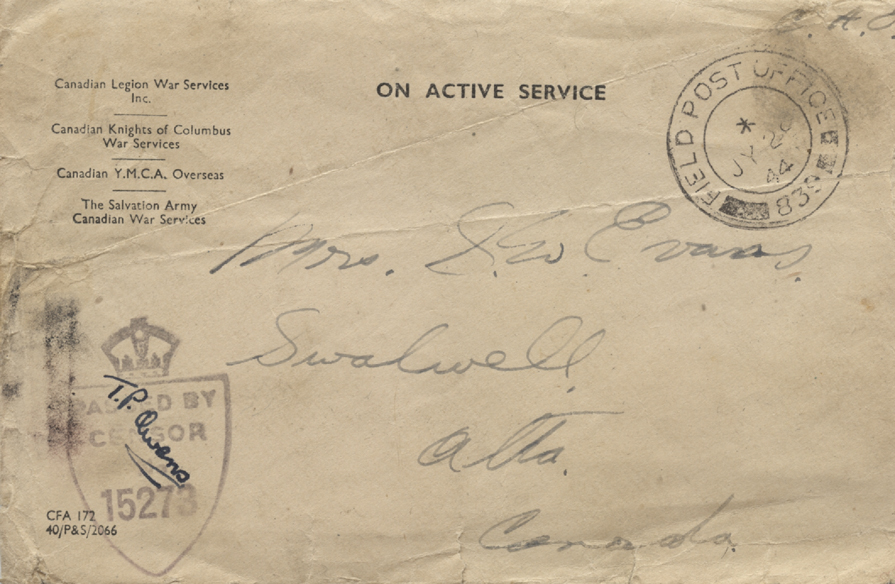 C. A. O.
Canadian Legion War Services
Inc.
Canadian Knights of Columbus
War Services
Canadian Y.M.C.A. Overseas
The Salvation Army
Canadian War Services
ON ACTIVE SERVICE
FIELD POST OFFICE
JY
44
Mrs. Evans.
Swalwell
Alta.
Canada.
PASSED BY
CENSOR
15273
T.P. Owens
CFA 172
40/P&S/2066